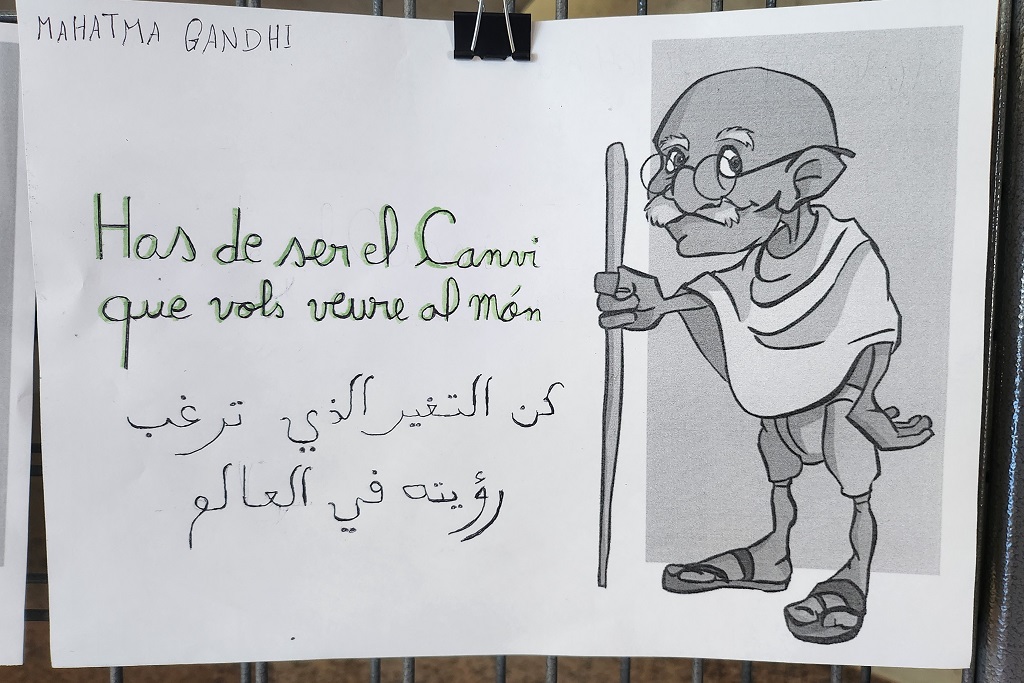 MAHATMA GANDHI
Has de ser el Canvi
que vols veure al món
كن التغير الذي ترغب
رؤيته في العالم